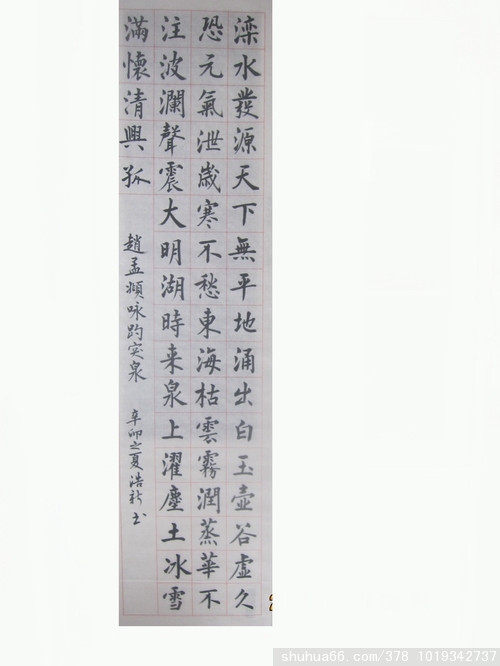 滦水發源天下無平地涌出白玉壺谷虛久
恐元氣泄歲寒不愁東海枯雲霧潤蒸華不
注波瀾聲震大明湖時来泉上濯塵土冰雪
滿懷清興孤 趙孟頫咏趵突泉 辛卯之夏浩书
shuhua66.com/378 1019342737